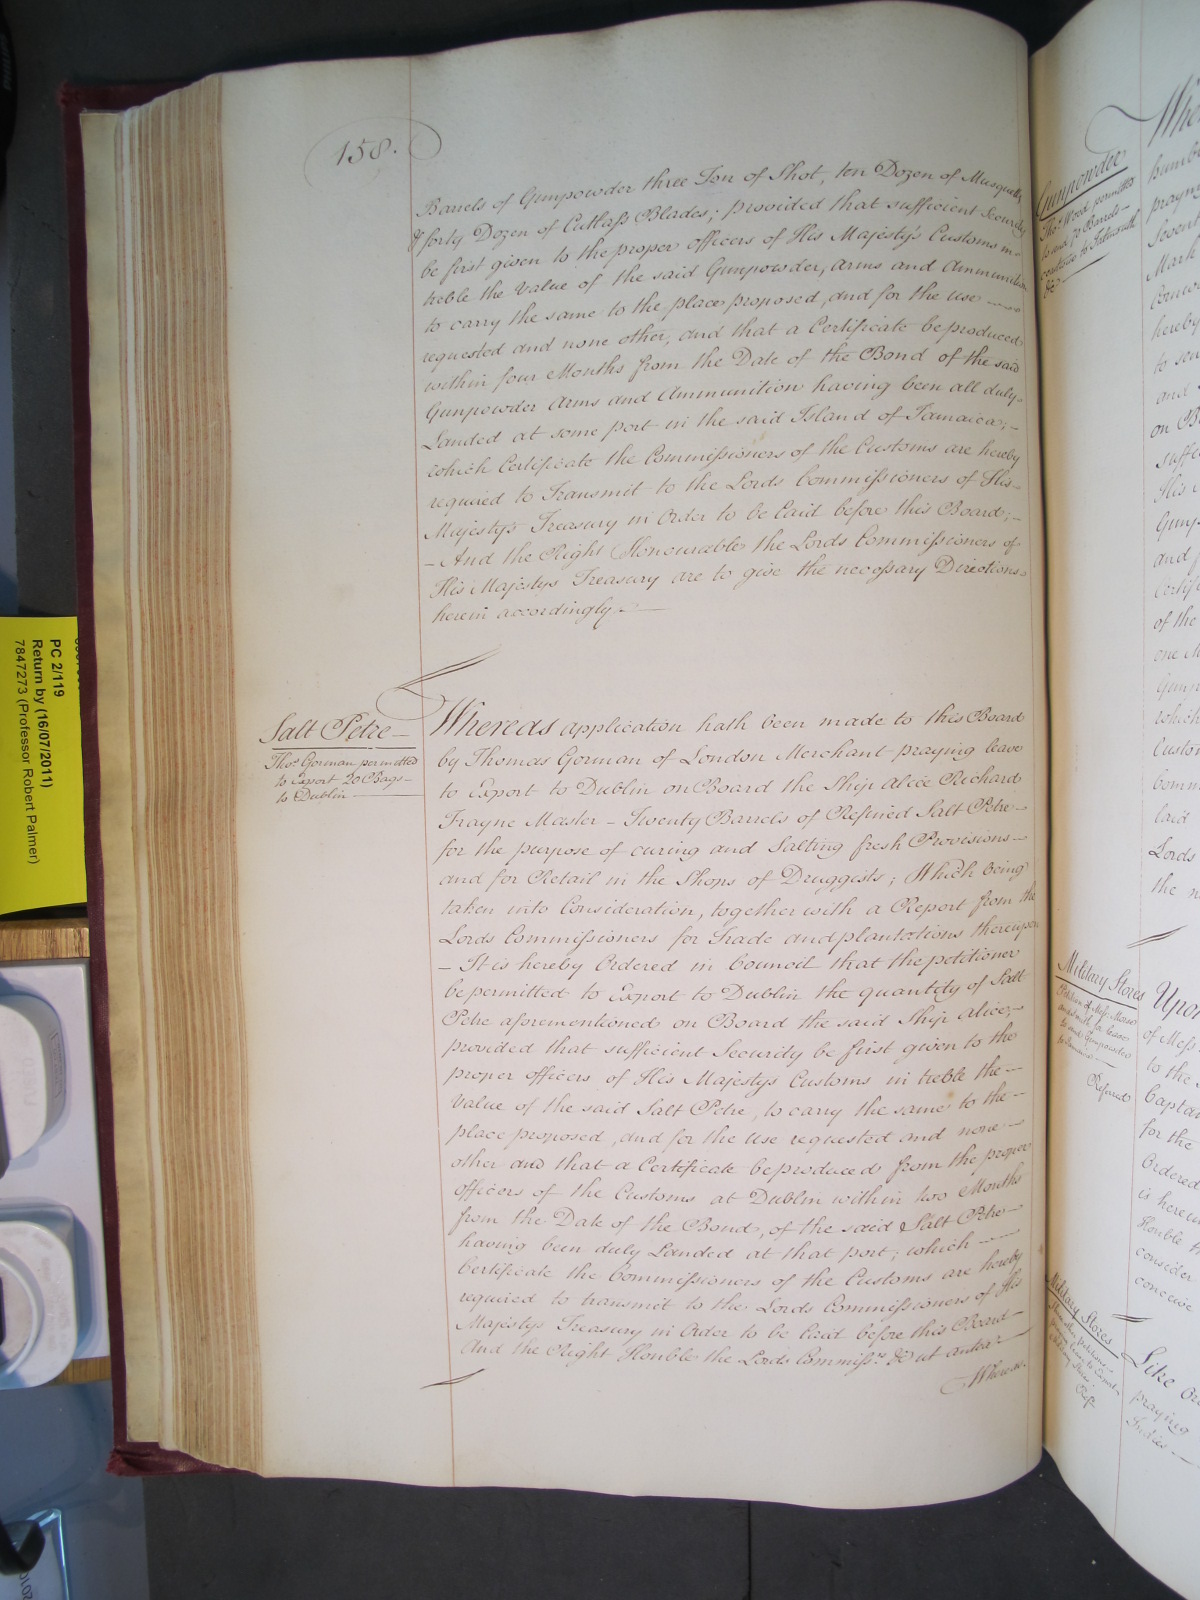 158.
Barrels of Gunpowder three Ton of Shot, ten Dozen of Musquetts
& forty Dozen of Cutlass Blades; provided that sufficient Security
be first given to the proper officers of His Majesty's Customs in
treble the Value of the said Gunpowder, Arms and Ammunition
to carry the same to the place proposed, and for the use
requested and none other, and that a Certificate be produced
within four Months from the Date of the Bond of the said
Gunpowder Arms and Ammunition having been all duly
Landed at some port in the said Island of Jamaica;
which Certificate the Commissioners of the Customs are hereby
required to Transmit to the Lords Commissioners of His
Majesty's Treasury in Order to be Laid before this Board;
And the Right Honourable the Lords Commissioners of
His Majestys Treasury are to give the necessary Directions
herein accordingly.
Salt Petre
Thos. Gorman permitted
to export 20 Bags
to Dublin
Whereas application hath been made to this Board
by Thomas Gorman of London Merchant praying leave
to Export to Dublin on Board the Ship Alice Richard
Frayne Master Twenty Barrels of Refined Salt Petre
for the purpose of curing and Salting fresh Provisions
and for Retail in the Shops of Druggists; Which being
taken into Consideration, together with a Report from the
Lords Commissioners for Trade and plantations thereupon
It is hereby Ordered in Council that the petitioner
be permitted to Export to Dublin the quantity of Salt
Petre aforementioned on Board the said Ship Alice;
provided that sufficient Security be first given to the
proper officers of His Majestys Customs in treble the
Value of the said Salt Petre, to carry the same to the
place proposed, and for the use requested and none
other and that a Certificate be produced from the proper
officers of the Customs at Dublin within two Months
from the Date of the Bond, of the said Salt Petre
having been duly Landed at that port; which
Certificate the Commissioners of the Customs are hereby
required to transmit to the Lords Commissioners of His
Majestys Treasury in Order to be Laid before this Board
And the Right Honble the Lords Commissrs. &c ut antea
Whereas
Gunpowder
Thos. Wood permitted
to send 70 Barrels
coastwise to Falmouth
&c
Military Stores
Referred
Military Stores
Upon
of Mess
to the
Captain
for the
Ordered
is herein
Honble
consider
Like Or
praying
Indies
PC 2/119
Return by (16/07/2011)
7847273 (Professor Robert Palmer)